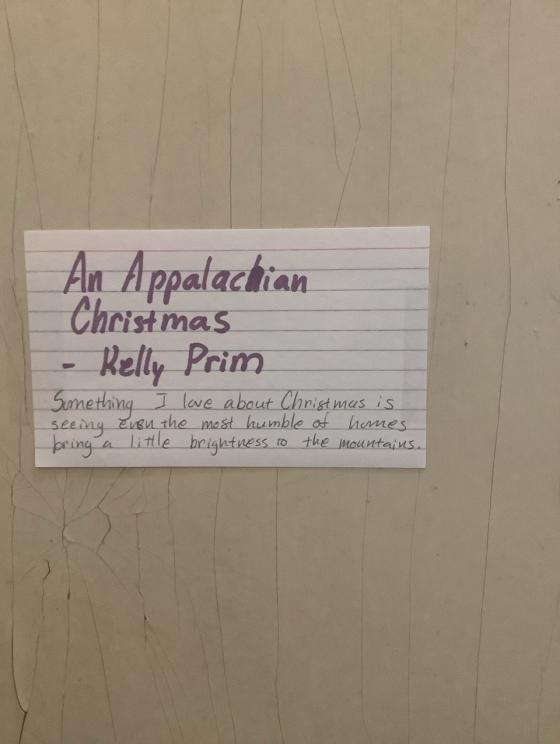 An Appalachian
Christmas
- Kelly Prim
Something I love about Christmas is
seeing even the most humble of homes
bring a little brightness to the mountains.